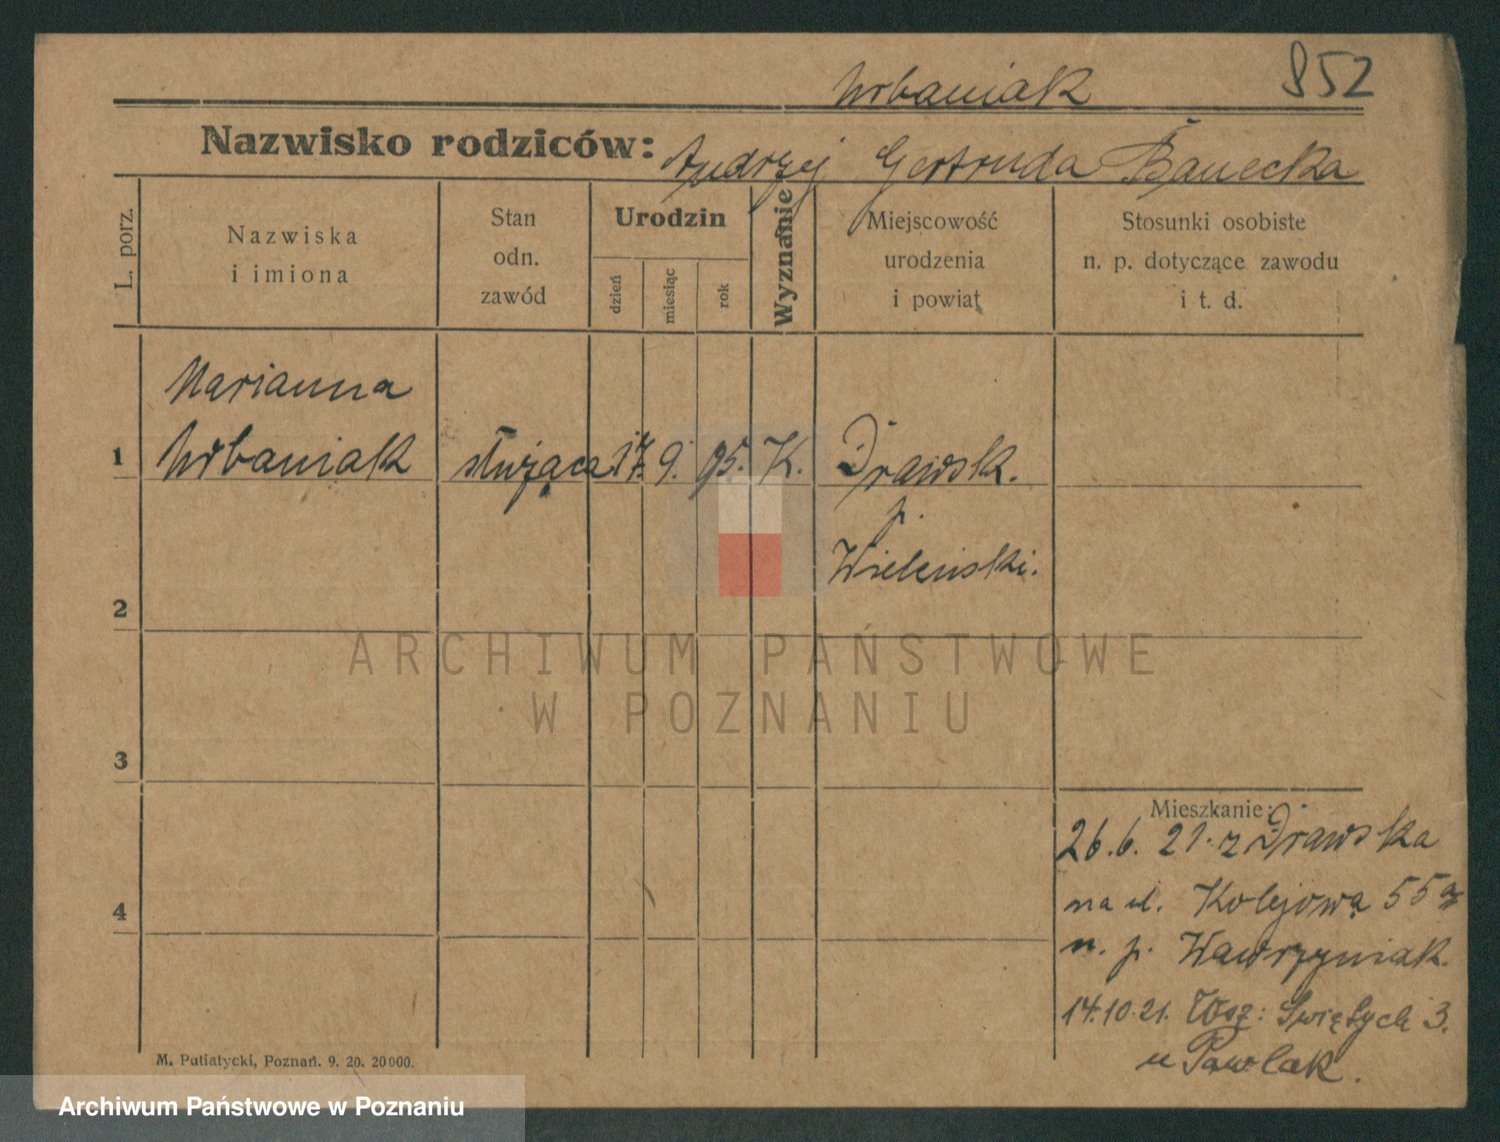 852
Urbaniak
Nazwisko rodziców: Andrzej Gertruda Banecka
L. porz.
Nazwiska
i imiona
Stan
odn.
zawód
Urodzin
dzień
miesiąc
rok
Wyznanie
Miejscowość
urodzenia
i powiat
Stosunki osobiste
n. p. dotyczące zawodu
i t. d.
Marianna
1 Urbaniak służąca 17. 9. 95. K. Drawsk.
p.
Wieleński.
2
3
4
ARCHIWUM PAŃSTWOWE
W POZNANIU
Mieszkanie:
26.6.21. z Drawska
na ul. Kolejową 55
u. p. Wawrzyniak.
14.10.21. Wsz: Świętych 3.
u Pawlak.
M. Putiatycki, Poznań. 9. 20. 20000.
Archiwum Państwowe w Poznaniu